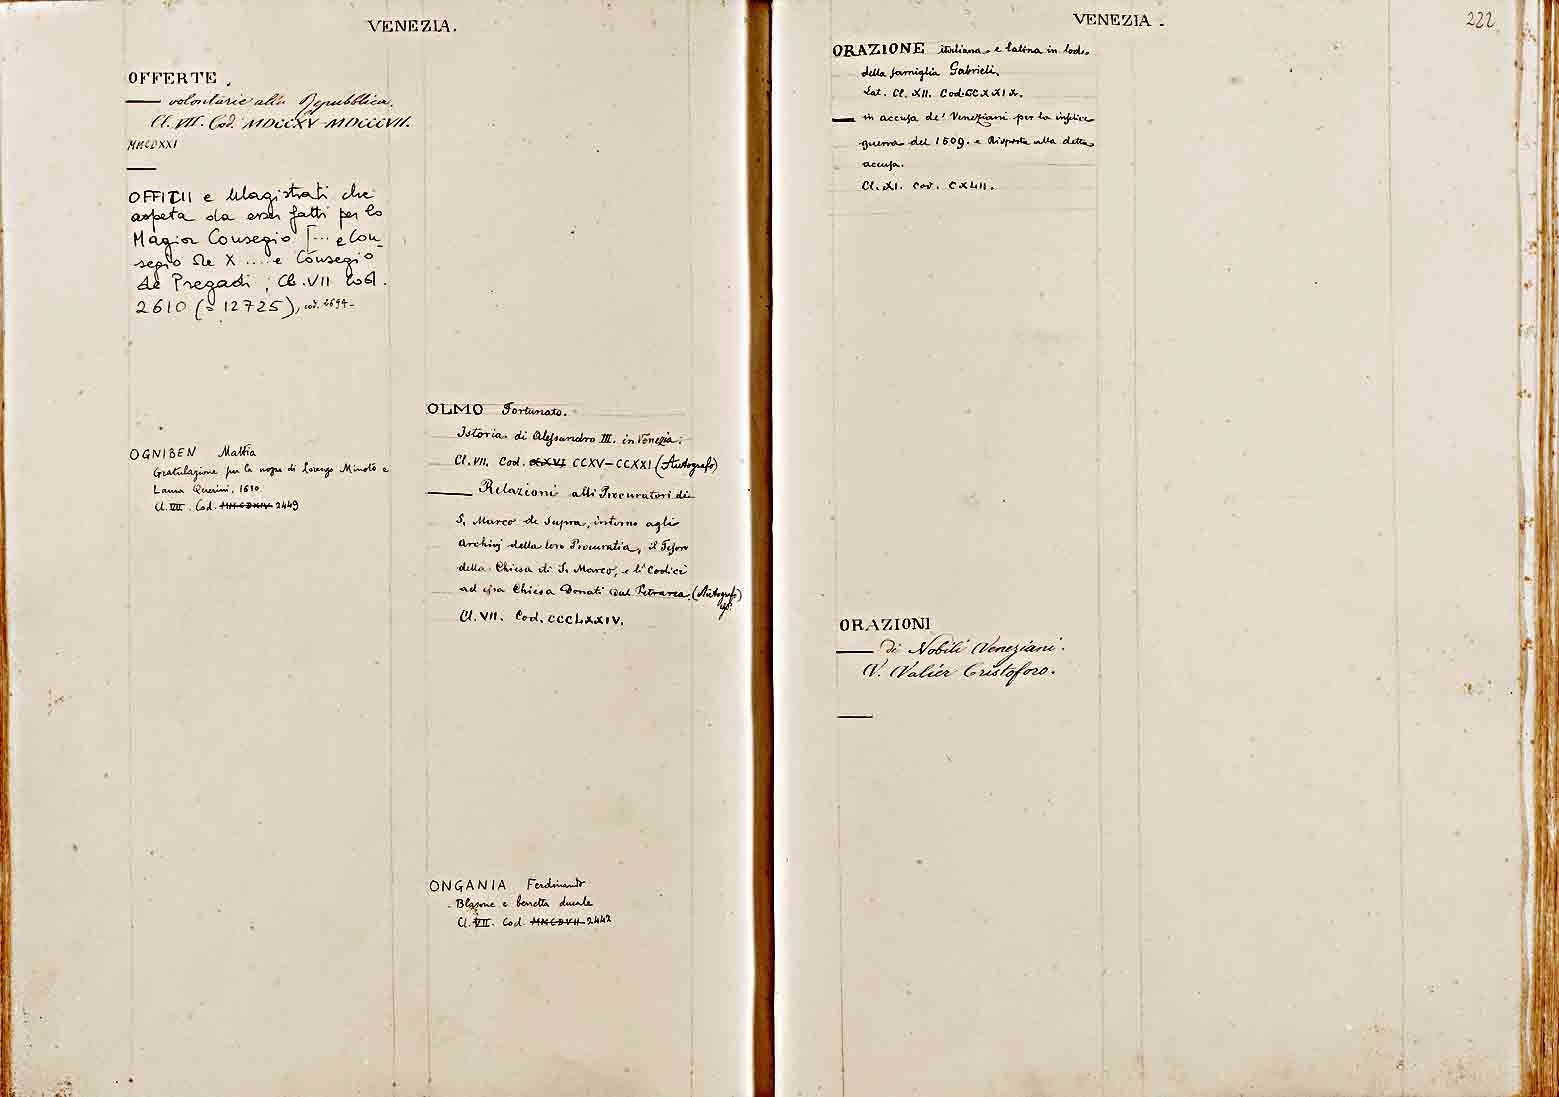 VENEZIA.
OFFERTE.
— volontarie alla Repubblica.
Cl. VII. Cod. MDCCXV-MDCCCVII.
MMCDXXI
OFFITII e Magistrati che
aspeta da esser fatti per lo
Magior Consegio [... e Con-
segio de X .... e Consegio
de Pregadi; Cl. VII Cod.
2610 (= 12725), cod. 2694-
OGNIBEN Mattia
Gratulazione per le nozze di Lorenzo Minoto e
Laura Querini, 1610
Cl. VII. Cod. MMCDXIV 2449
OLMO Fortunato.
Istoria di Alessandro III. in Venezia.
Cl. VII. Cod. CCXVI CCXV-CCXXI (Autografo)
— Relazioni alli Procuratori di
S. Marco de Supra, intorno agli
Archivj della loro Procuratia, il Tesoro
della Chiesa di S. Marco, e li Codici
ad essa Chiesa Donati dal Petrarca. (Autografo)
Cl. VII. Cod. CCCLXXIV.
ONGANIA Ferdinando
Blasone e berretta ducale
Cl. VII. Cod. MMCDVII 2442
VENEZIA.
222
ORAZIONE italiana e latina in lode
della famiglia Gabrieli.
Lat. Cl. XII. Cod. CCXXIX.
— in accusa de' Veneziani per la infelice
guerra del 1509. e Risposta alla detta
accusa.
Cl. XI. Cod. CXLII.
ORAZIONI
— di Nobili Veneziani.
V. Valier Cristoforo.